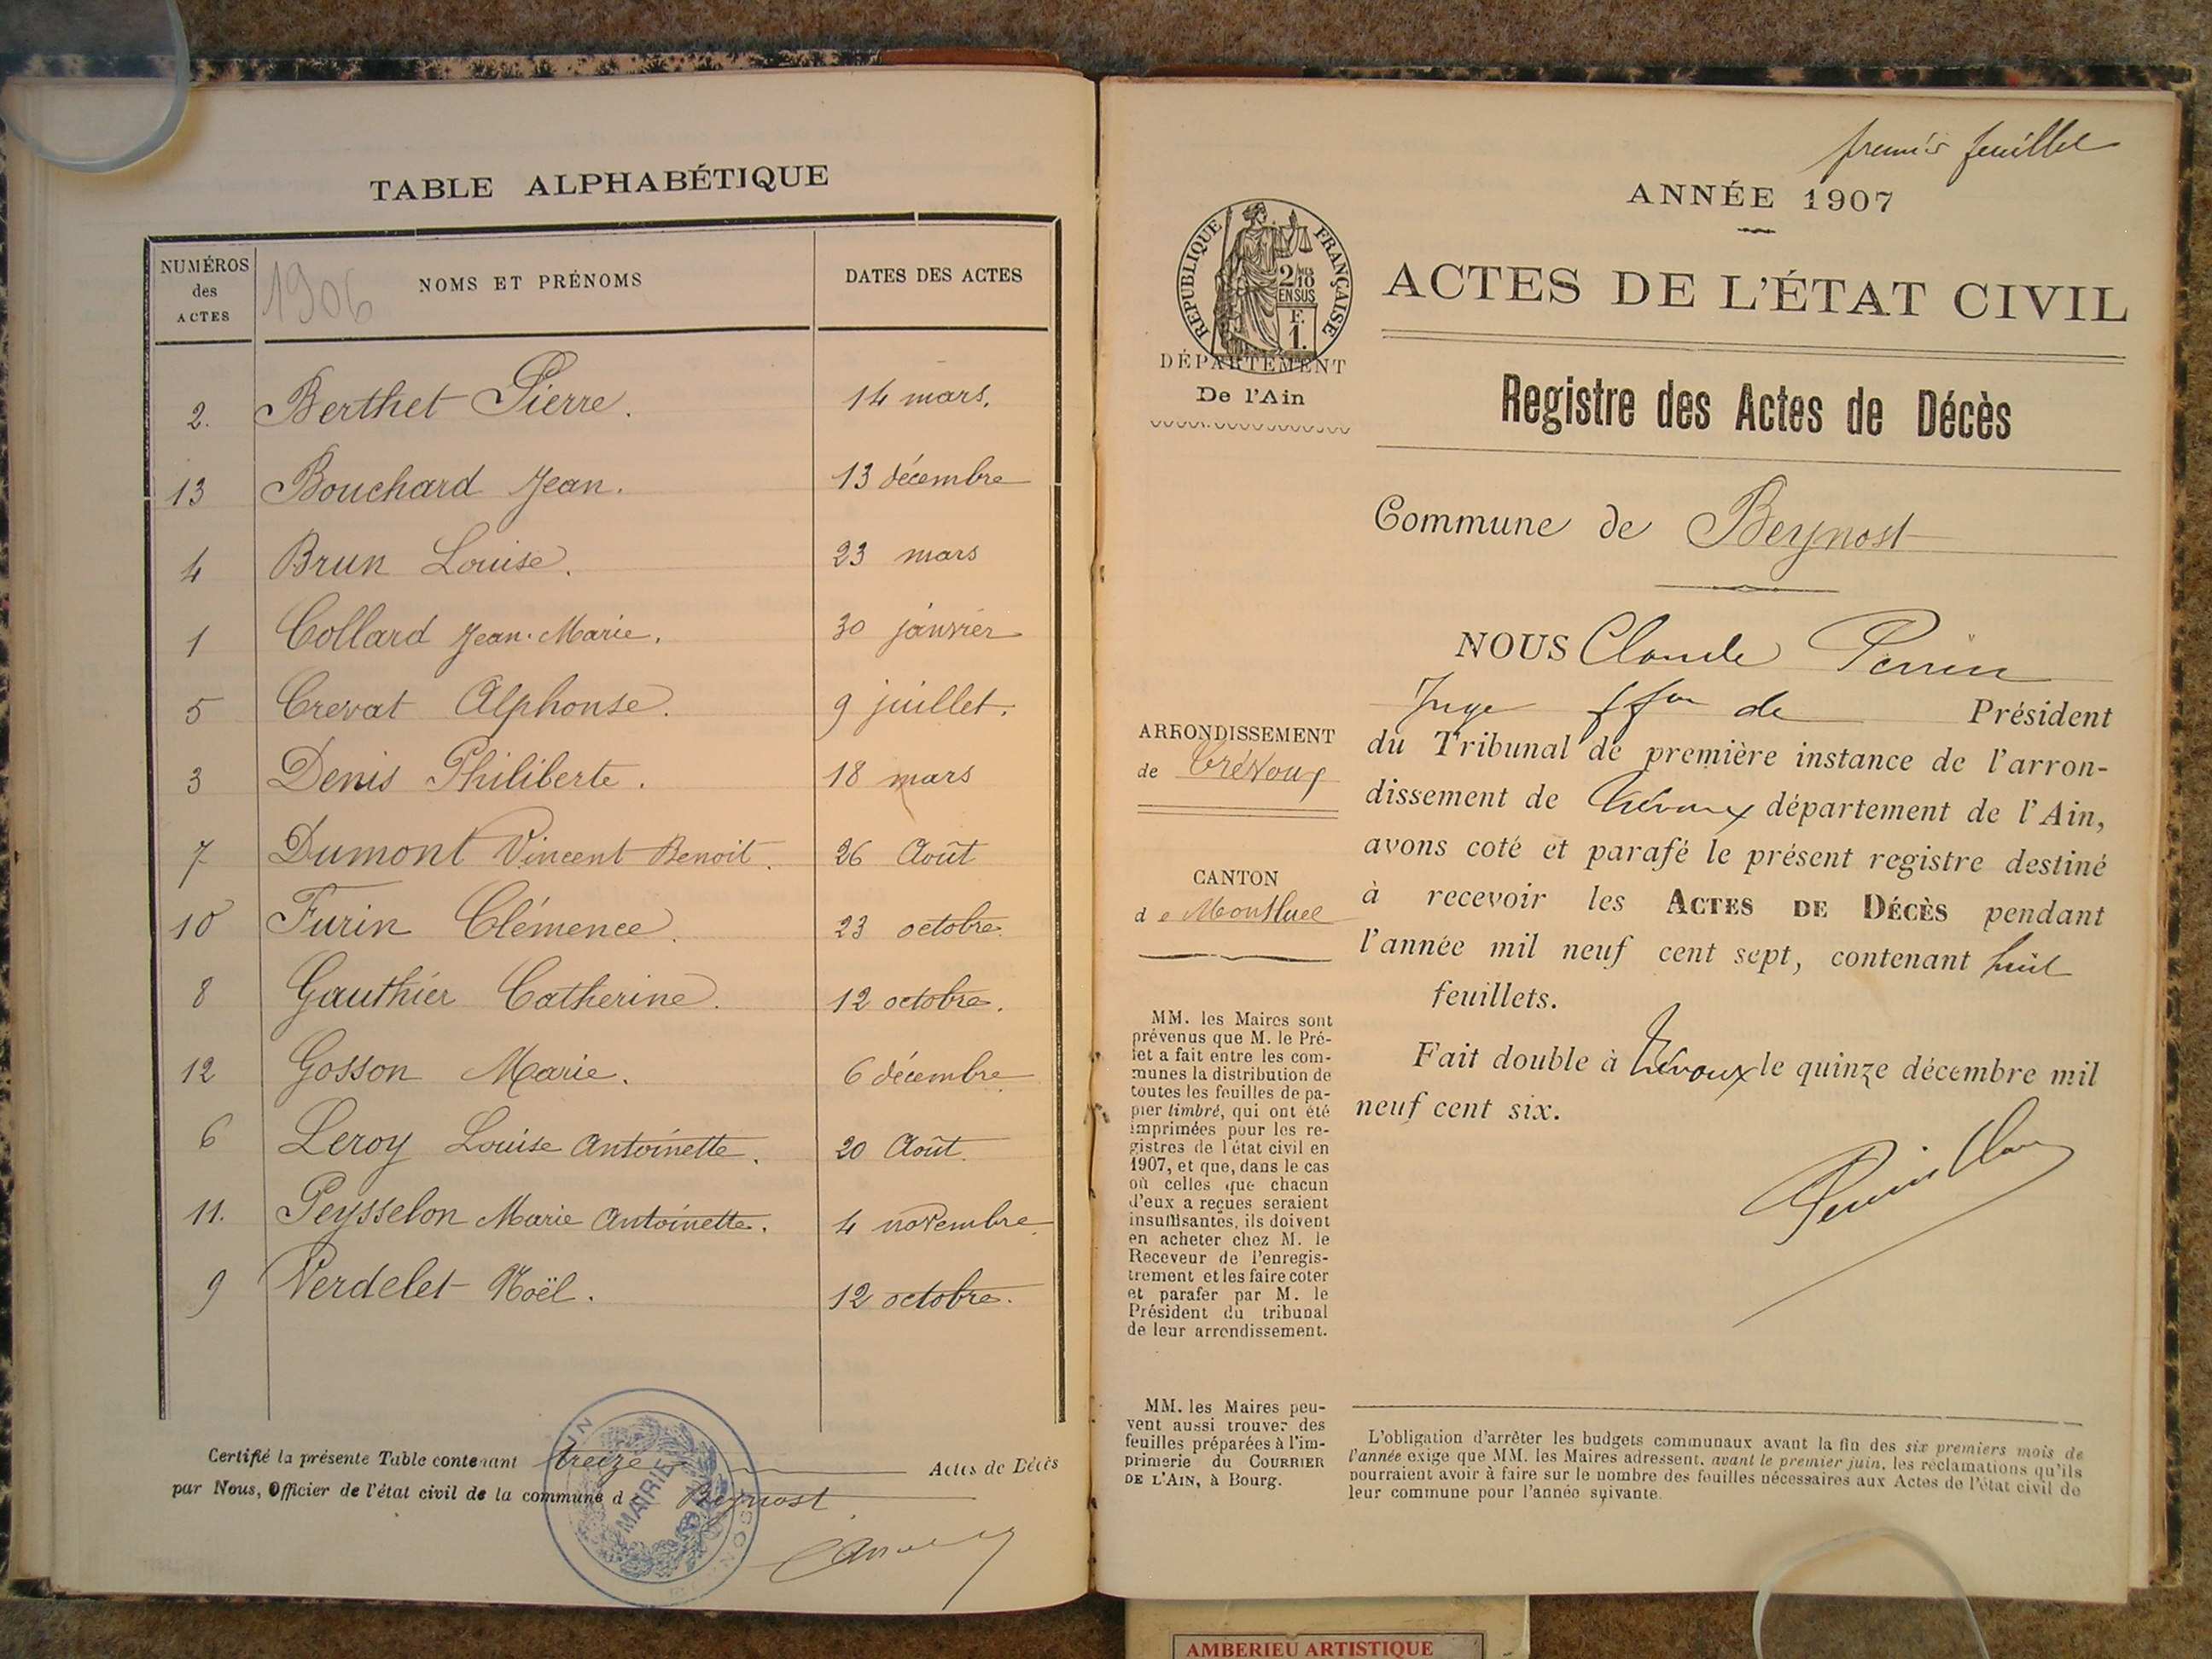 TABLE ALPHABÉTIQUE
NUMÉROS
des
ACTES
1906
NOMS ET PRÉNOMS
DATES DES ACTES
2. Berthet Pierre. 14 mars.
13 Bouchard Jean. 13 décembre
4 Brun Louise. 23 mars
1 Collard Jean-Marie. 30 janvier
5 Crevat Alphonse. 9 juillet.
3 Denis Philiberte. 18 mars
7 Dumont Vincent Benoit. 26 Août
10 Furin Clémence. 23 octobre.
8 Gauthier Catherine. 12 octobre.
12 Gosson Marie. 6 décembre
6 Leroy Louise Antoinette. 20 Août.
11. Peysselon Marie Antoinette. 4 novembre.
9 Verdelet Noël. 12 octobre.
Certifié la présente Table contenant treize Actes de Décès
par Nous, Officier de l'état civil de la commune d Beynost
MAIRIE
premier feuillet
ANNÉE 1907
RÉPUBLIQUE FRANÇAISE
2/10
EN SUS
F.
1.
DÉPARTEMENT
De l'Ain
ACTES DE L'ÉTAT CIVIL
Registre des Actes de Décès
Commune de Beynost
NOUS Claude Perrin
Juge ffon de Président
du Tribunal de première instance de l'arron-
dissement de Trévoux département de l'Ain,
avons coté et parafé le présent registre destiné
à recevoir les ACTES DE DÉCÈS pendant
l'année mil neuf cent sept, contenant huit
feuillets.
Fait double à Trévoux le quinze décembre mil
neuf cent six.
ARRONDISSEMENT
de Trévoux
CANTON
de Montluel
MM. les Maires sont
prévenus que M. le Pré-
fet a fait entre les com-
munes la distribution de
toutes les feuilles de pa-
pier timbré, qui ont été
imprimées pour les re-
gistres de l'état civil en
1907, et que, dans le cas
où celles que chacun
d'eux a reçues seraient
insuffisantes, ils doivent
en acheter chez M. le
Receveur de l'enregis-
trement et les faire coter
et parafer par M. le
Président du tribunal
de leur arrondissement.
MM. les Maires peu-
vent aussi trouver des
feuilles préparées à l'im-
primerie du COURRIER
DE L'AIN, à Bourg.
L'obligation d'arrêter les budgets communaux avant la fin des six premiers mois de
l'année exige que MM. les Maires adressent, avant le premier juin, les réclamations qu'ils
pourraient avoir à faire sur le nombre des feuilles nécessaires aux Actes de l'état civil de
leur commune pour l'année suivante.
AMBERIEU ARTISTIQUE